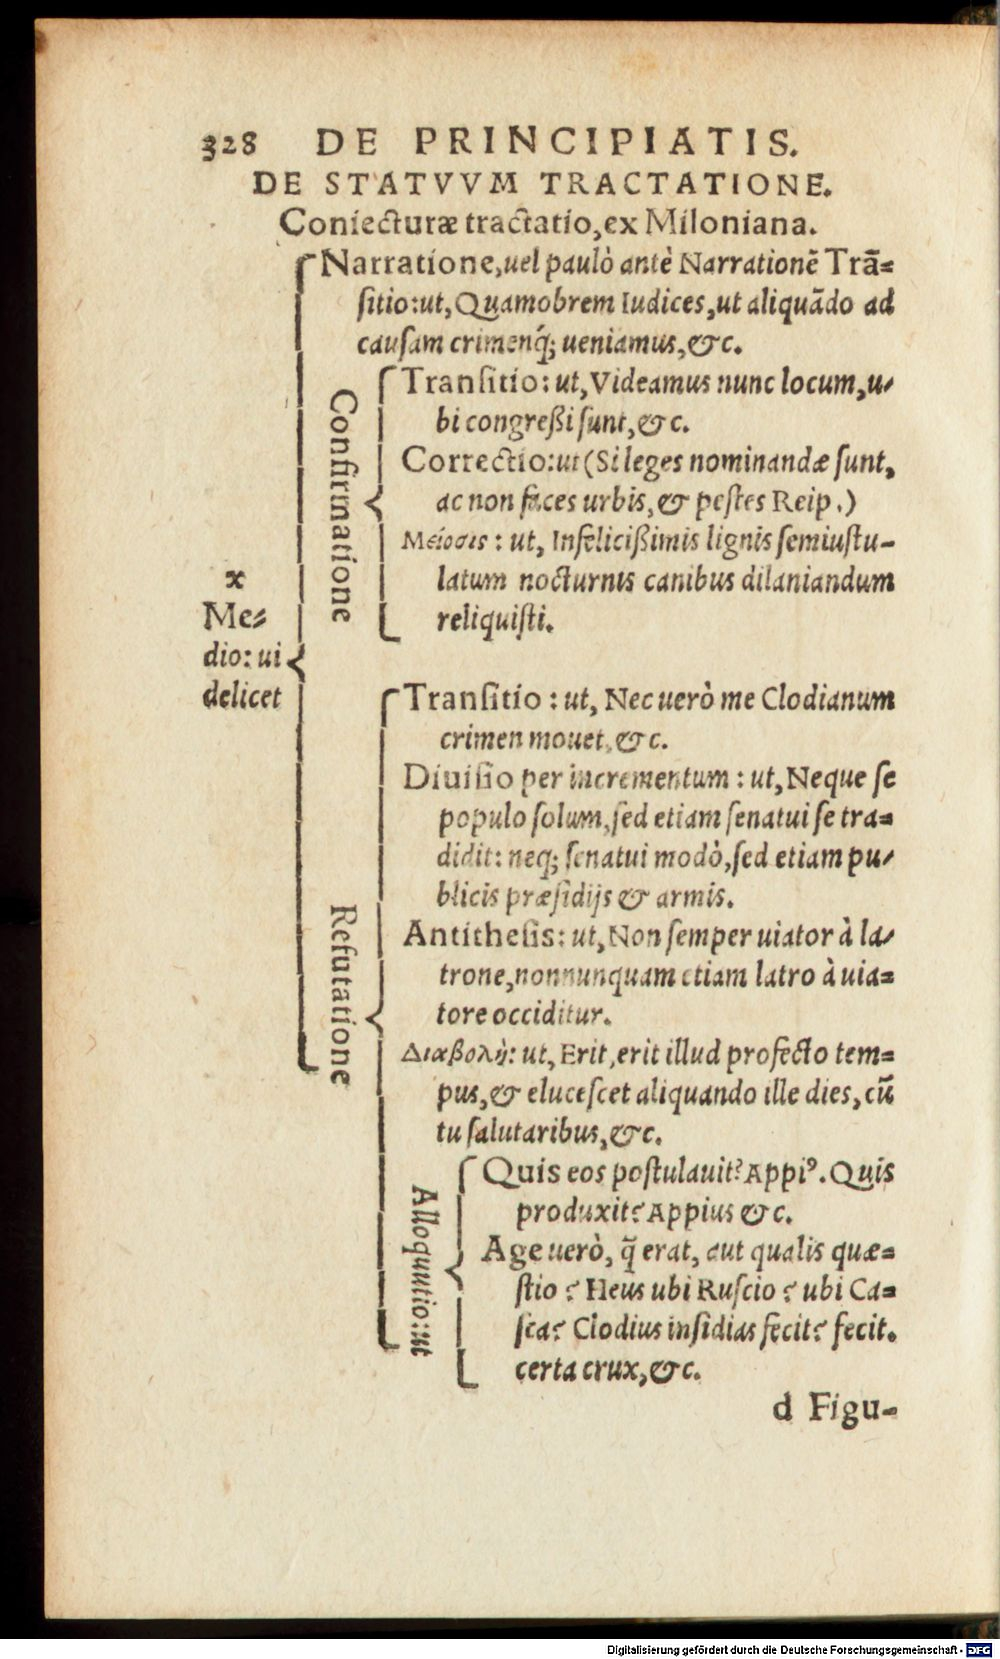 328 DE PRINCIPIATIS.
DE STATVVM TRACTATIONE.
Coniecturæ tractatio, ex Miloniana.
x
Me-
dio: ui
delicet
Narratione, uel paulò antè Narrationẽ Trã-
ſitio: ut, Quamobrem Iudices, ut aliquãdo ad
cauſam crimenq́; ueniamus, &c.
Confirmatione
Tranſitio: ut, Videamus nunc locum, u-
bi congreßi ſunt, &c.
Correctio: ut (Si leges nominandæ ſunt,
ac non faces urbis, & peſtes Reip.)
Μείοσις: ut, Infelicißimis lignis ſemiuſtu-
latum nocturnis canibus dilaniandum
reliquiſti.
Refutatione
Tranſitio: ut, Nec uerò me Clodianum
crimen mouet, &c.
Diuiſio per incrementum: ut, Neque ſe
populo ſolum, ſed etiam ſenatui ſe tra-
didit: neq; ſenatui modò, ſed etiam pu-
blicis præſidijs & armis.
Antitheſis: ut, Non ſemper uiator à la-
trone, nonnunquam etiam latro à uia-
tore occiditur.
Διαβολὴ: ut, Erit, erit illud profecto tem-
pus, & eluceſcet aliquando ille dies, cũ
tu ſalutaribus, &c.
Alloquutio: ut
Quis eos poſtulauit? Appiꝰ. Quis
produxit? Appius &c.
Age uerò, q̃ erat, aut qualis quæ-
ſtio? Heus ubi Ruſcio? ubi Ca-
ſca? Clodius inſidias fecit? fecit.
certa crux, &c.
d Figu-
Digitalisierung gefördert durch die Deutsche Forschungsgemeinschaft - DFG